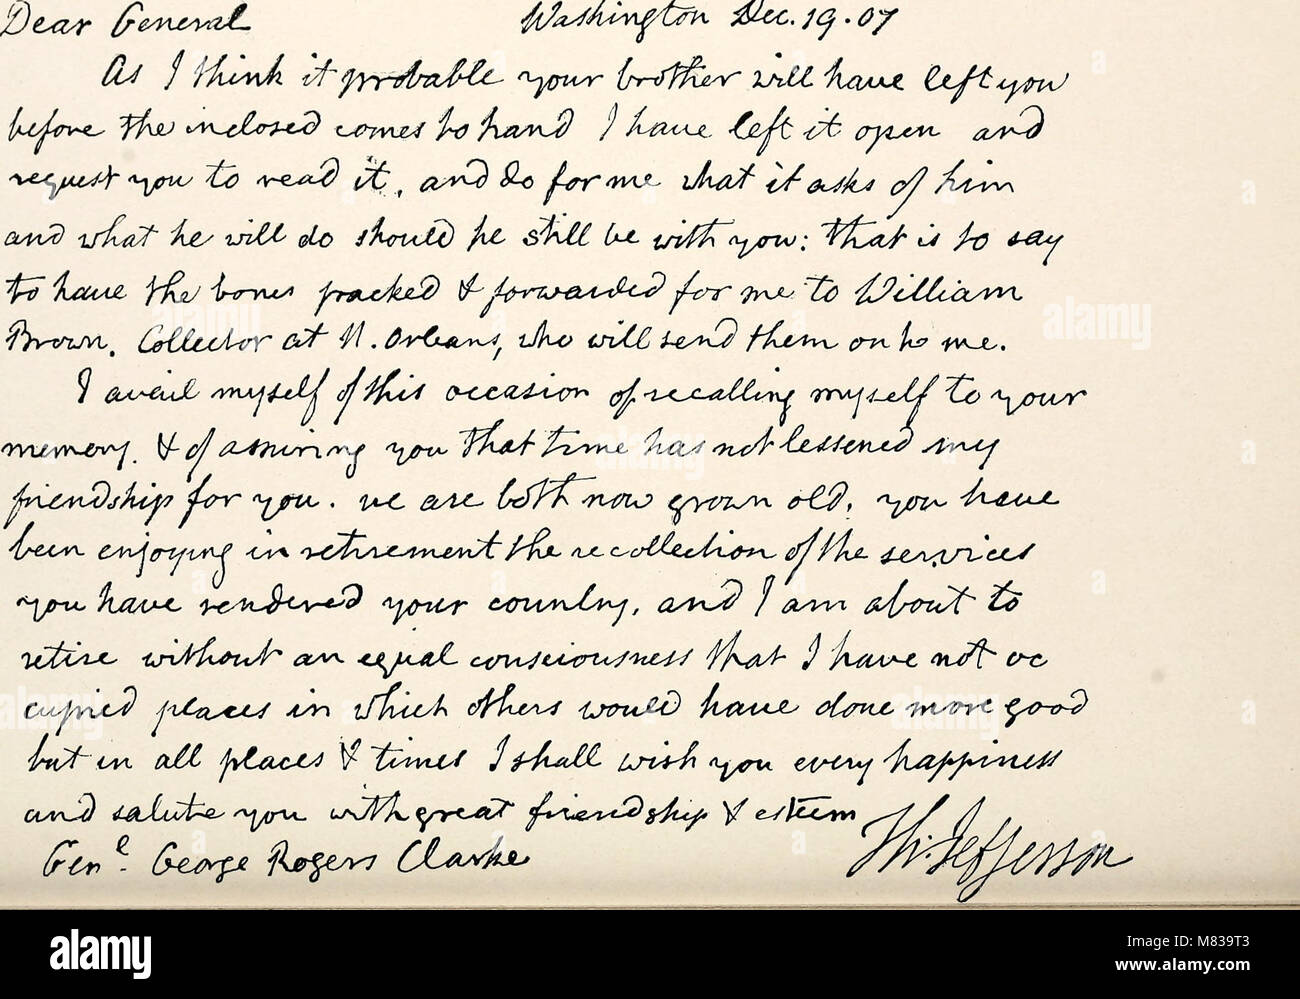 Dear General Washington Dec. 19. 07
As I think it probable your brother will have left you
before the inclosed comes to hand I have left it open and
request you to read it, and do for me what it asks of him
and what he will do should he still be with you: that is to say
to have the bones packed & forwarded for me to William
Brown. Collector at N. Orleans, who will send them on to me.
I avail myself of this occasion of recalling myself to your
memory. & of assuring you that time has not lessened my
friendship for you. we are both now grown old. you have
been enjoying in retirement the recollection of the services
you have rendered your country, and I am about to
retire without an equal consciousness that I have not oc
cupied places in which others would have done more good
but in all places & times I shall wish you every happiness
and salute you with great friendship & esteem
Th. Jefferson
Genl. George Rogers Clarke
alamy
Image ID: M839T3
www.alamy.com